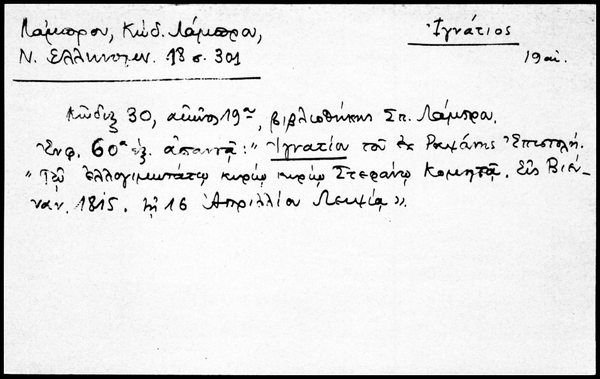 Λάμπρου, Κώδ. Λάμπρου,
Ν. Ελληνομν. 18 σ. 301
Ἰγνάτιος
19 αἰ.
Κῶδιξ 30, αἰῶνος 19ου, βιβλιοθήκης Σπ. Λάμπρου.
60α ἑξ. ἀπαντᾷ: " Ἰγνατίου τοῦ ἐκ Ἐπιστολή.
" Τῷ ἐλλογιμωτάτῳ κυρίῳ κυρίῳ Στεφάνῳ Κομητᾷ. Εἰς Βιέν-
ναν. 1815. τῇ 16 Ἀπριλλίου ".